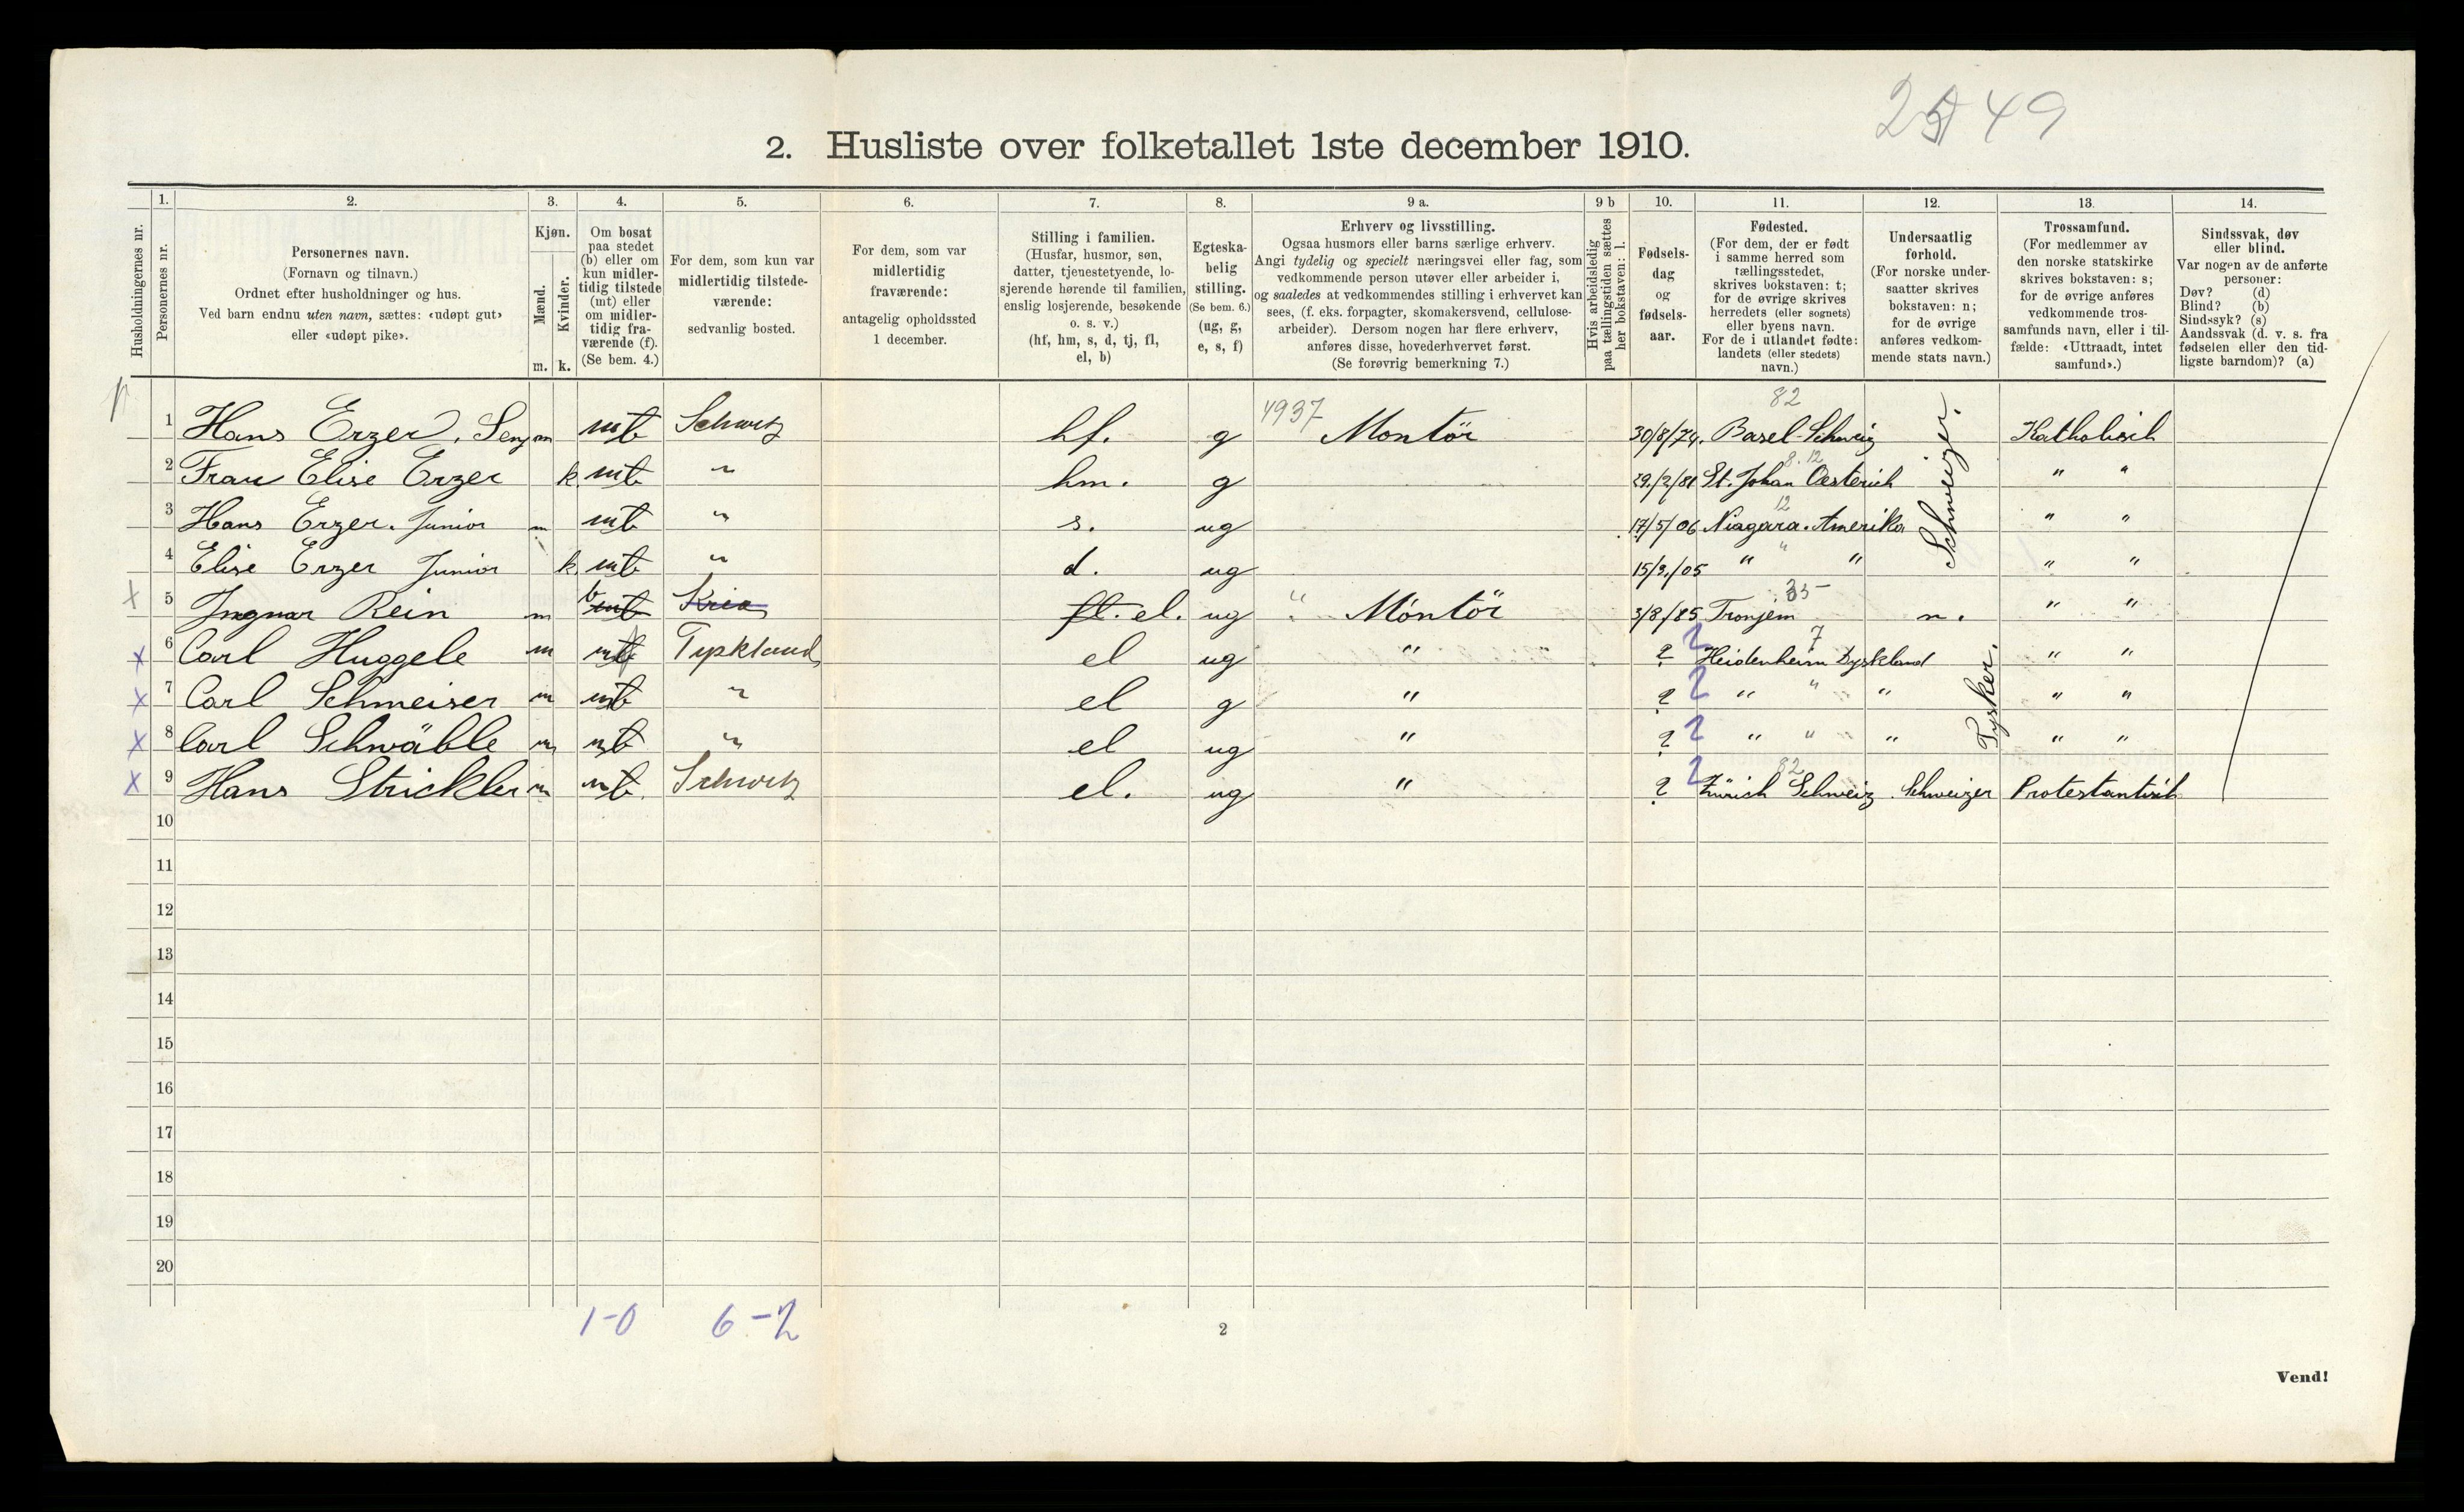 25 49
2. Husliste over folketallet 1ste december 1910.
Husholdningernes nr.
1. Personernes nr.
2. Personernes navn.
(Fornavn og tilnavn.)
Ordnet efter husholdninger og hus.
Ved barn endnu uten navn, sættes: «udøpt gut»
eller «udøpt pike».
3. Kjøn.
Mænd. Kvinder.
m. k.
4. Om bosat
paa stedet
(b) eller om
kun midler-
tidig tilstede
(mt) eller
om midler-
tidig fra-
værende (f).
(Se bem. 4.)
5. For dem, som kun var
midlertidig tilstede-
værende:
sedvanlig bosted.
6. For dem, som var
midlertidig
fraværende:
antagelig opholdssted
1 december.
7. Stilling i familien.
(Husfar, husmor, søn,
datter, tjenestetyende, lo-
sjerende hørende til familien,
enslig losjerende, besøkende
o. s. v.)
(hf, hm, s, d, tj, fl,
el, b)
8. Egteska-
belig
stilling.
(Se bem. 6.)
(ug, g,
e, s, f)
9 a. Erhverv og livsstilling.
Ogsaa husmors eller barns særlige erhverv.
Angi tydelig og specielt næringsvei eller fag, som
vedkommende person utøver eller arbeider i,
og saaledes at vedkommendes stilling i erhvervet kan
sees, (f. eks. forpagter, skomakersvend, cellulose-
arbeider). Dersom nogen har flere erhverv,
anføres disse, hovederhvervet først.
(Se forøvrig bemerkning 7.)
9 b Hvis arbeidsledig
paa tællingstiden sættes
her bokstaven: l.
10. Fødsels-
dag
og
fødsels-
aar.
11. Fødested.
(For dem, der er født
i samme herred som
tællingsstedet,
skrives bokstaven: t;
for de øvrige skrives
herredets (eller sognets)
eller byens navn.
For de i utlandet fødte:
landets (eller stedets)
navn.)
12. Undersaatlig
forhold.
(For norske under-
saatter skrives
bokstaven: n;
for de øvrige
anføres vedkom-
mende stats navn.)
13. Trossamfund.
(For medlemmer av
den norske statskirke
skrives bokstaven: s;
for de øvrige anføres
vedkommende tros-
samfunds navn, eller i til-
fælde: «Uttraadt, intet
samfund».)
14. Sindssvak, døv
eller blind.
Var nogen av de anførte
personer:
Døv? (d)
Blind? (b)
Sindssyk? (s)
Aandssvak (d. v. s. fra
fødselen eller den tid-
ligste barndom)? (a)
1 Hans Erzer. Senj m mt Schweiz hf. g 4937 Montör 30/8/74. Basel-Schweiz 82 Schweizer. Katholisch
2 Frau Elise Erzer k. mt " hm. g 29./2/81 St. Johan Oesterich 8.12 " "
3 Hans Erzer. Junior m mt " s. ug 17/5/06 Niagara. Amerika 12 " "
4 Elise Erzer Junior k. mt " d. ug 15/9./05 " " " " "
x 5 Ingnar Rein m b mt Kria fl. el. ug " Montör 3/8/85 Tronjem 35- n. " "
x 6 Carl Huggele m mt Tyskland el ug " ? Heidenheim Tyskland 7 Tysker. " "
x 7 Carl Schmeiser m mt " el g " ? " " " " "
x 8 Carl Schwäble m mt " el ug " ? " " " " "
x 9 Hans Strickler m mt. Schweiz el. ug " ? Zürich Schweiz 82 Schweizer Protestantisch
10
11
12
13
14
15
16
17
18
19
20
1-0 6-2
2
Vend!